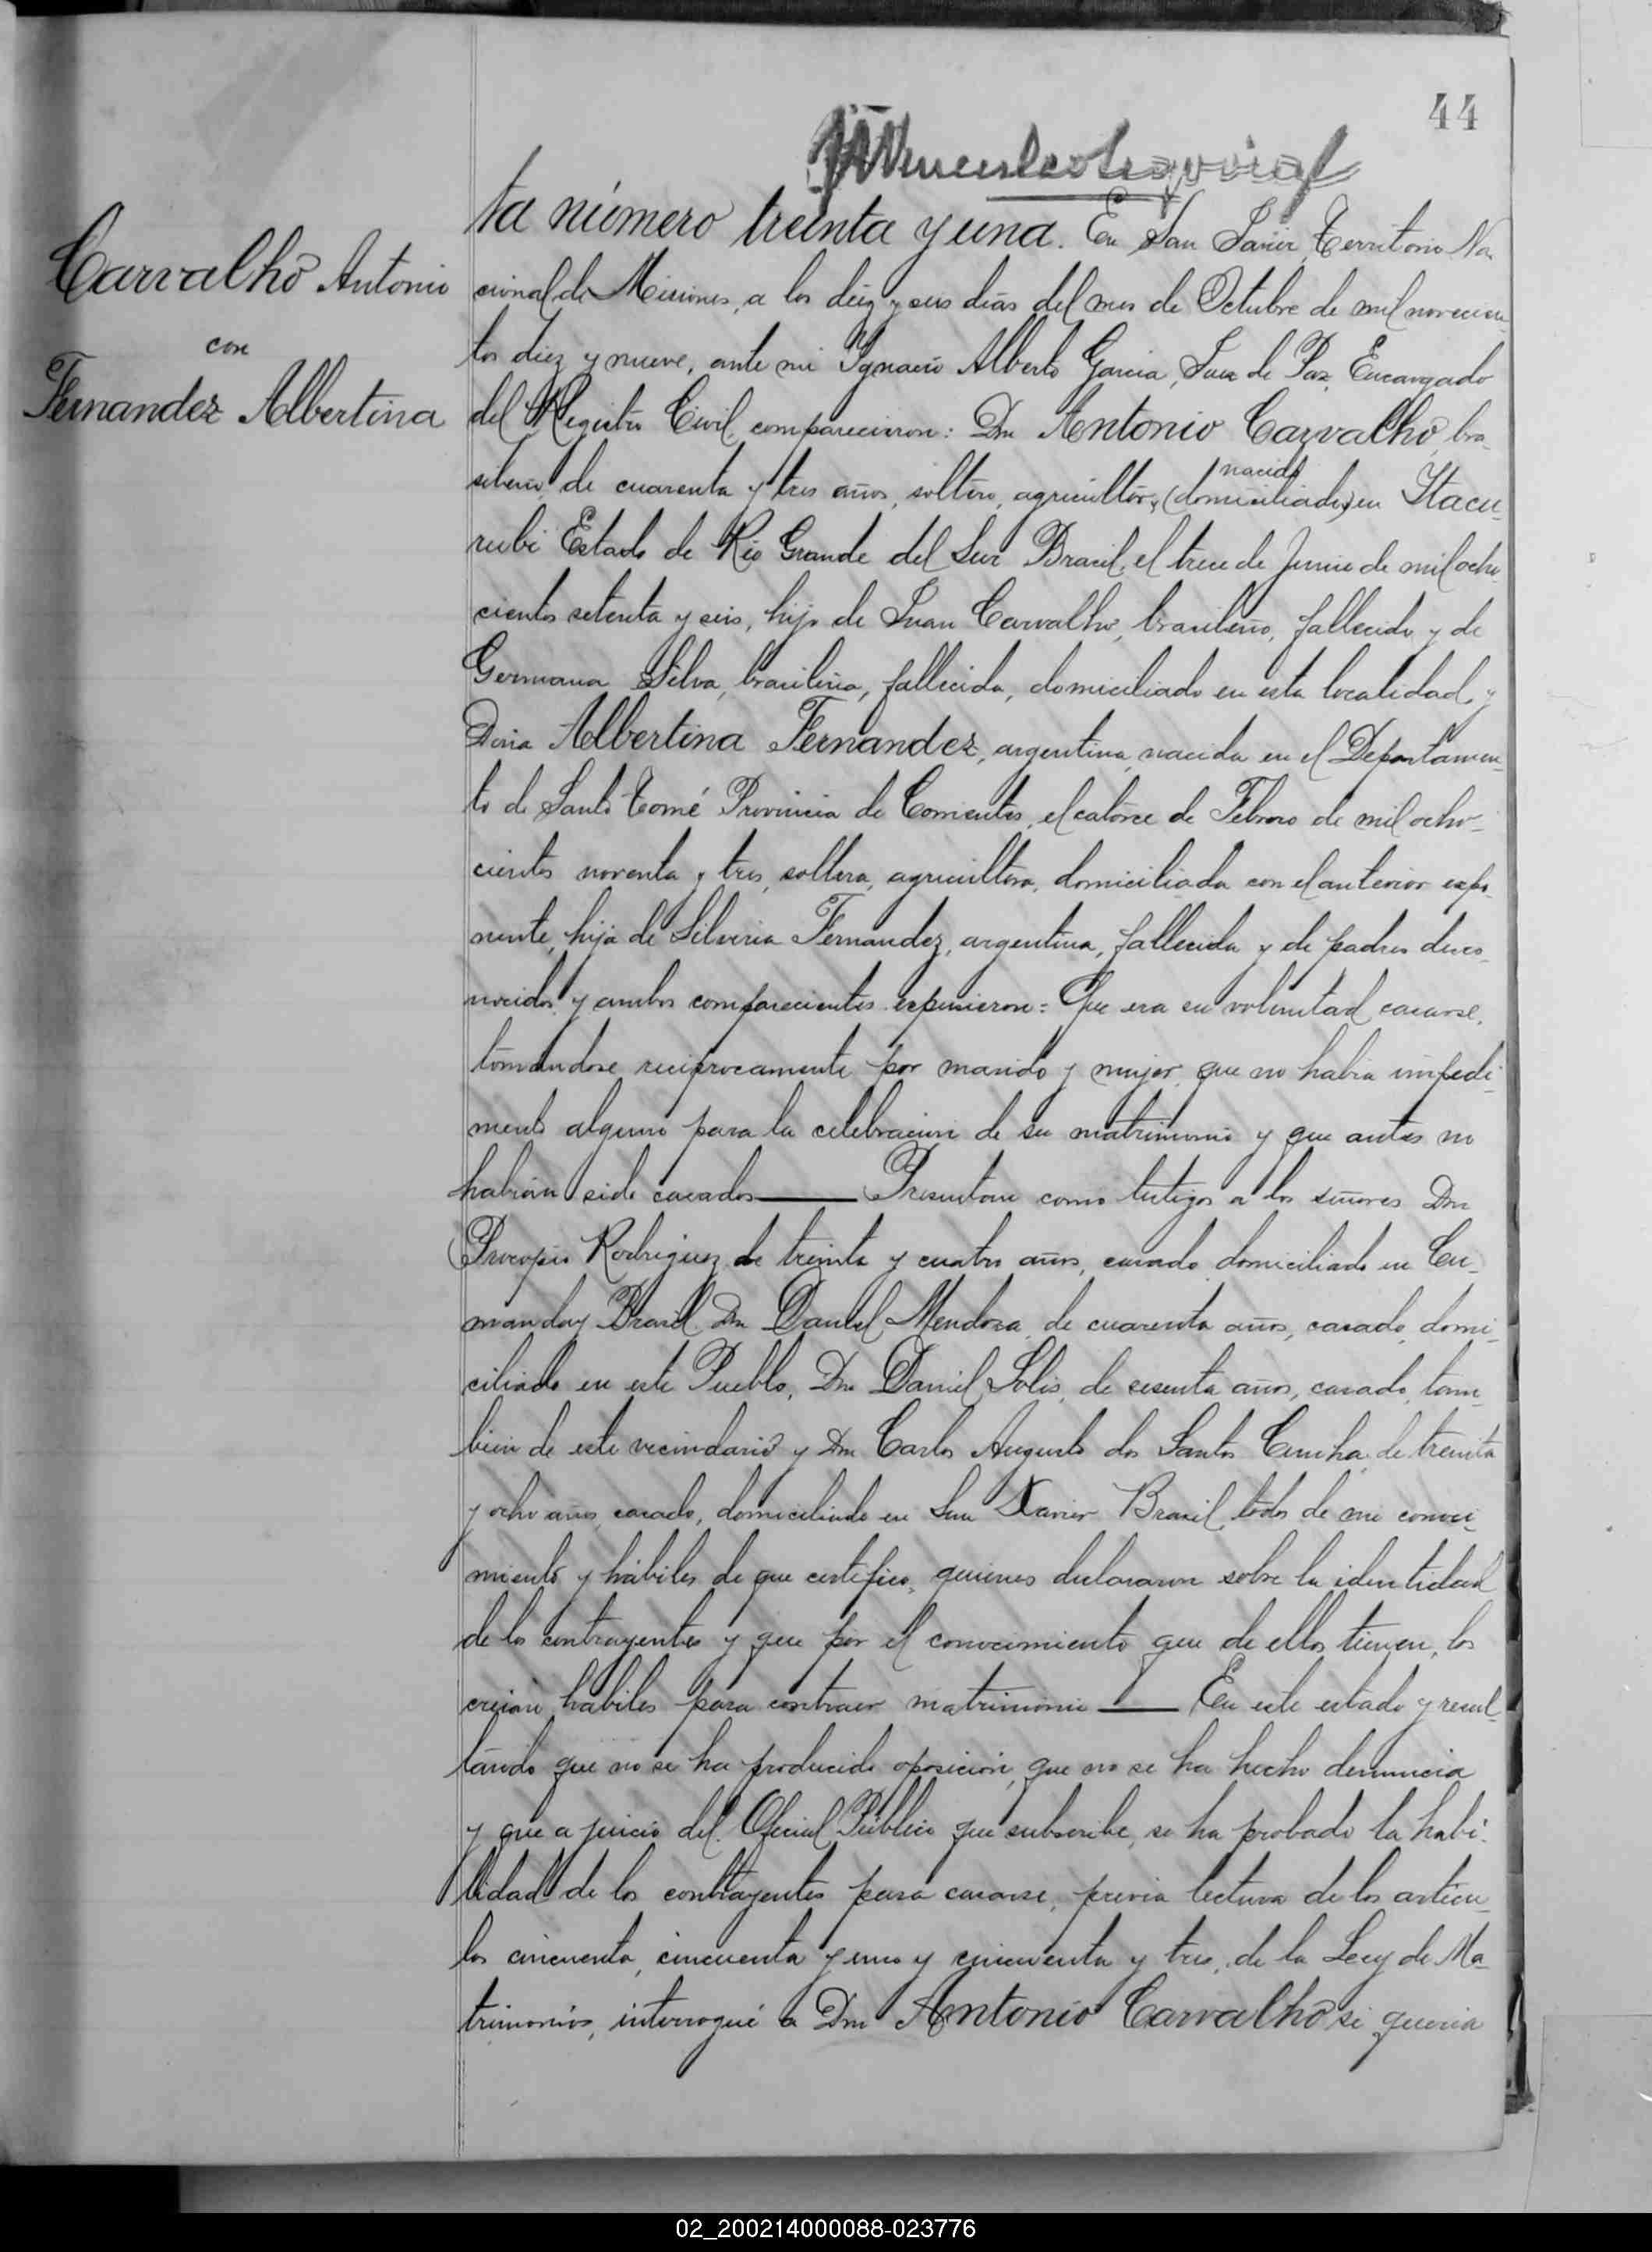 44
Carvalho Antonio
con
Fernandez Albertina
ta número treinta y una. En San Javier, Territorio Na-
cional de Misiones, a los diez y seis dias del mes de Octubre de mil novecien-
tos diez y nueve, ante mi Ygnacio Alberto Garcia, Juez de Paz, Encargado
del Registro Civil, comparecieron: Dn Antonio Carvalho, bra-
silero, de cuarenta y tres años, soltero, agricultor, (domiciliado) nacido en Itacu-
rubi Estado de Rio Grande del Sur Brasil, el trece de Junio de mil ocho
cientos setenta y seis, hijo de Juan Carvalho, brasilero, fallecido y de
Germana Silva, brasilera, fallecida, domiciliado en esta localidad, y
Doña Albertina Fernandez, argentina, nacida en el Departamen-
to de Santo Tomé Provincia de Corrientes, el catorce de Febrero de mil ocho-
cientos noventa y tres, soltera, agricultora, domiciliada con el anterior expo-
nente, hija de Silveria Fernandez, argentina, fallecida y de padres desco-
nocidos y ambos comparecientes expusieron: Que era su voluntad casarse,
tomandose reciprocamente por marido y mujer, que no habia impedi-
mento alguno para la celebracion de su matrimonio y que antes no
habian sido casados — Presentan como testigos a los señores Dn
Procopio Rodriguez de treinta y cuatro años, casado domiciliado en Cu-
manday Brasil Dn Daniel Mendoza, de cuarenta años, casado, domi-
ciliado en este Pueblo, Dn Daniel Solis, de sesenta años, casado, tam-
bien de este vecindario y Dn Carlos Augusto dos Santos Cunha de treinta
y ocho años, casado, domiciliado en San Xavier Brasil, todos de mi conoci-
miento y hábiles de que certifico, quienes declararon sobre la identidad
de los contrayentes y que por el conocimiento que de ellos tienen, los
creian habiles para contraer matrimonio — En este estado y resul-
tando que no se ha producido oposición, que no se ha hecho denuncia
y que a juicio del Oficial Público que subscribe, se ha probado la habi-
lidad de los contrayentes para casarse, previa lectura de los articu-
los cincuenta, cincuenta y uno y cincuenta y tres, de la Ley de Ma-
trimonios, interrogué a Dn Antonio Carvalho si queria
02_200214000088-023776